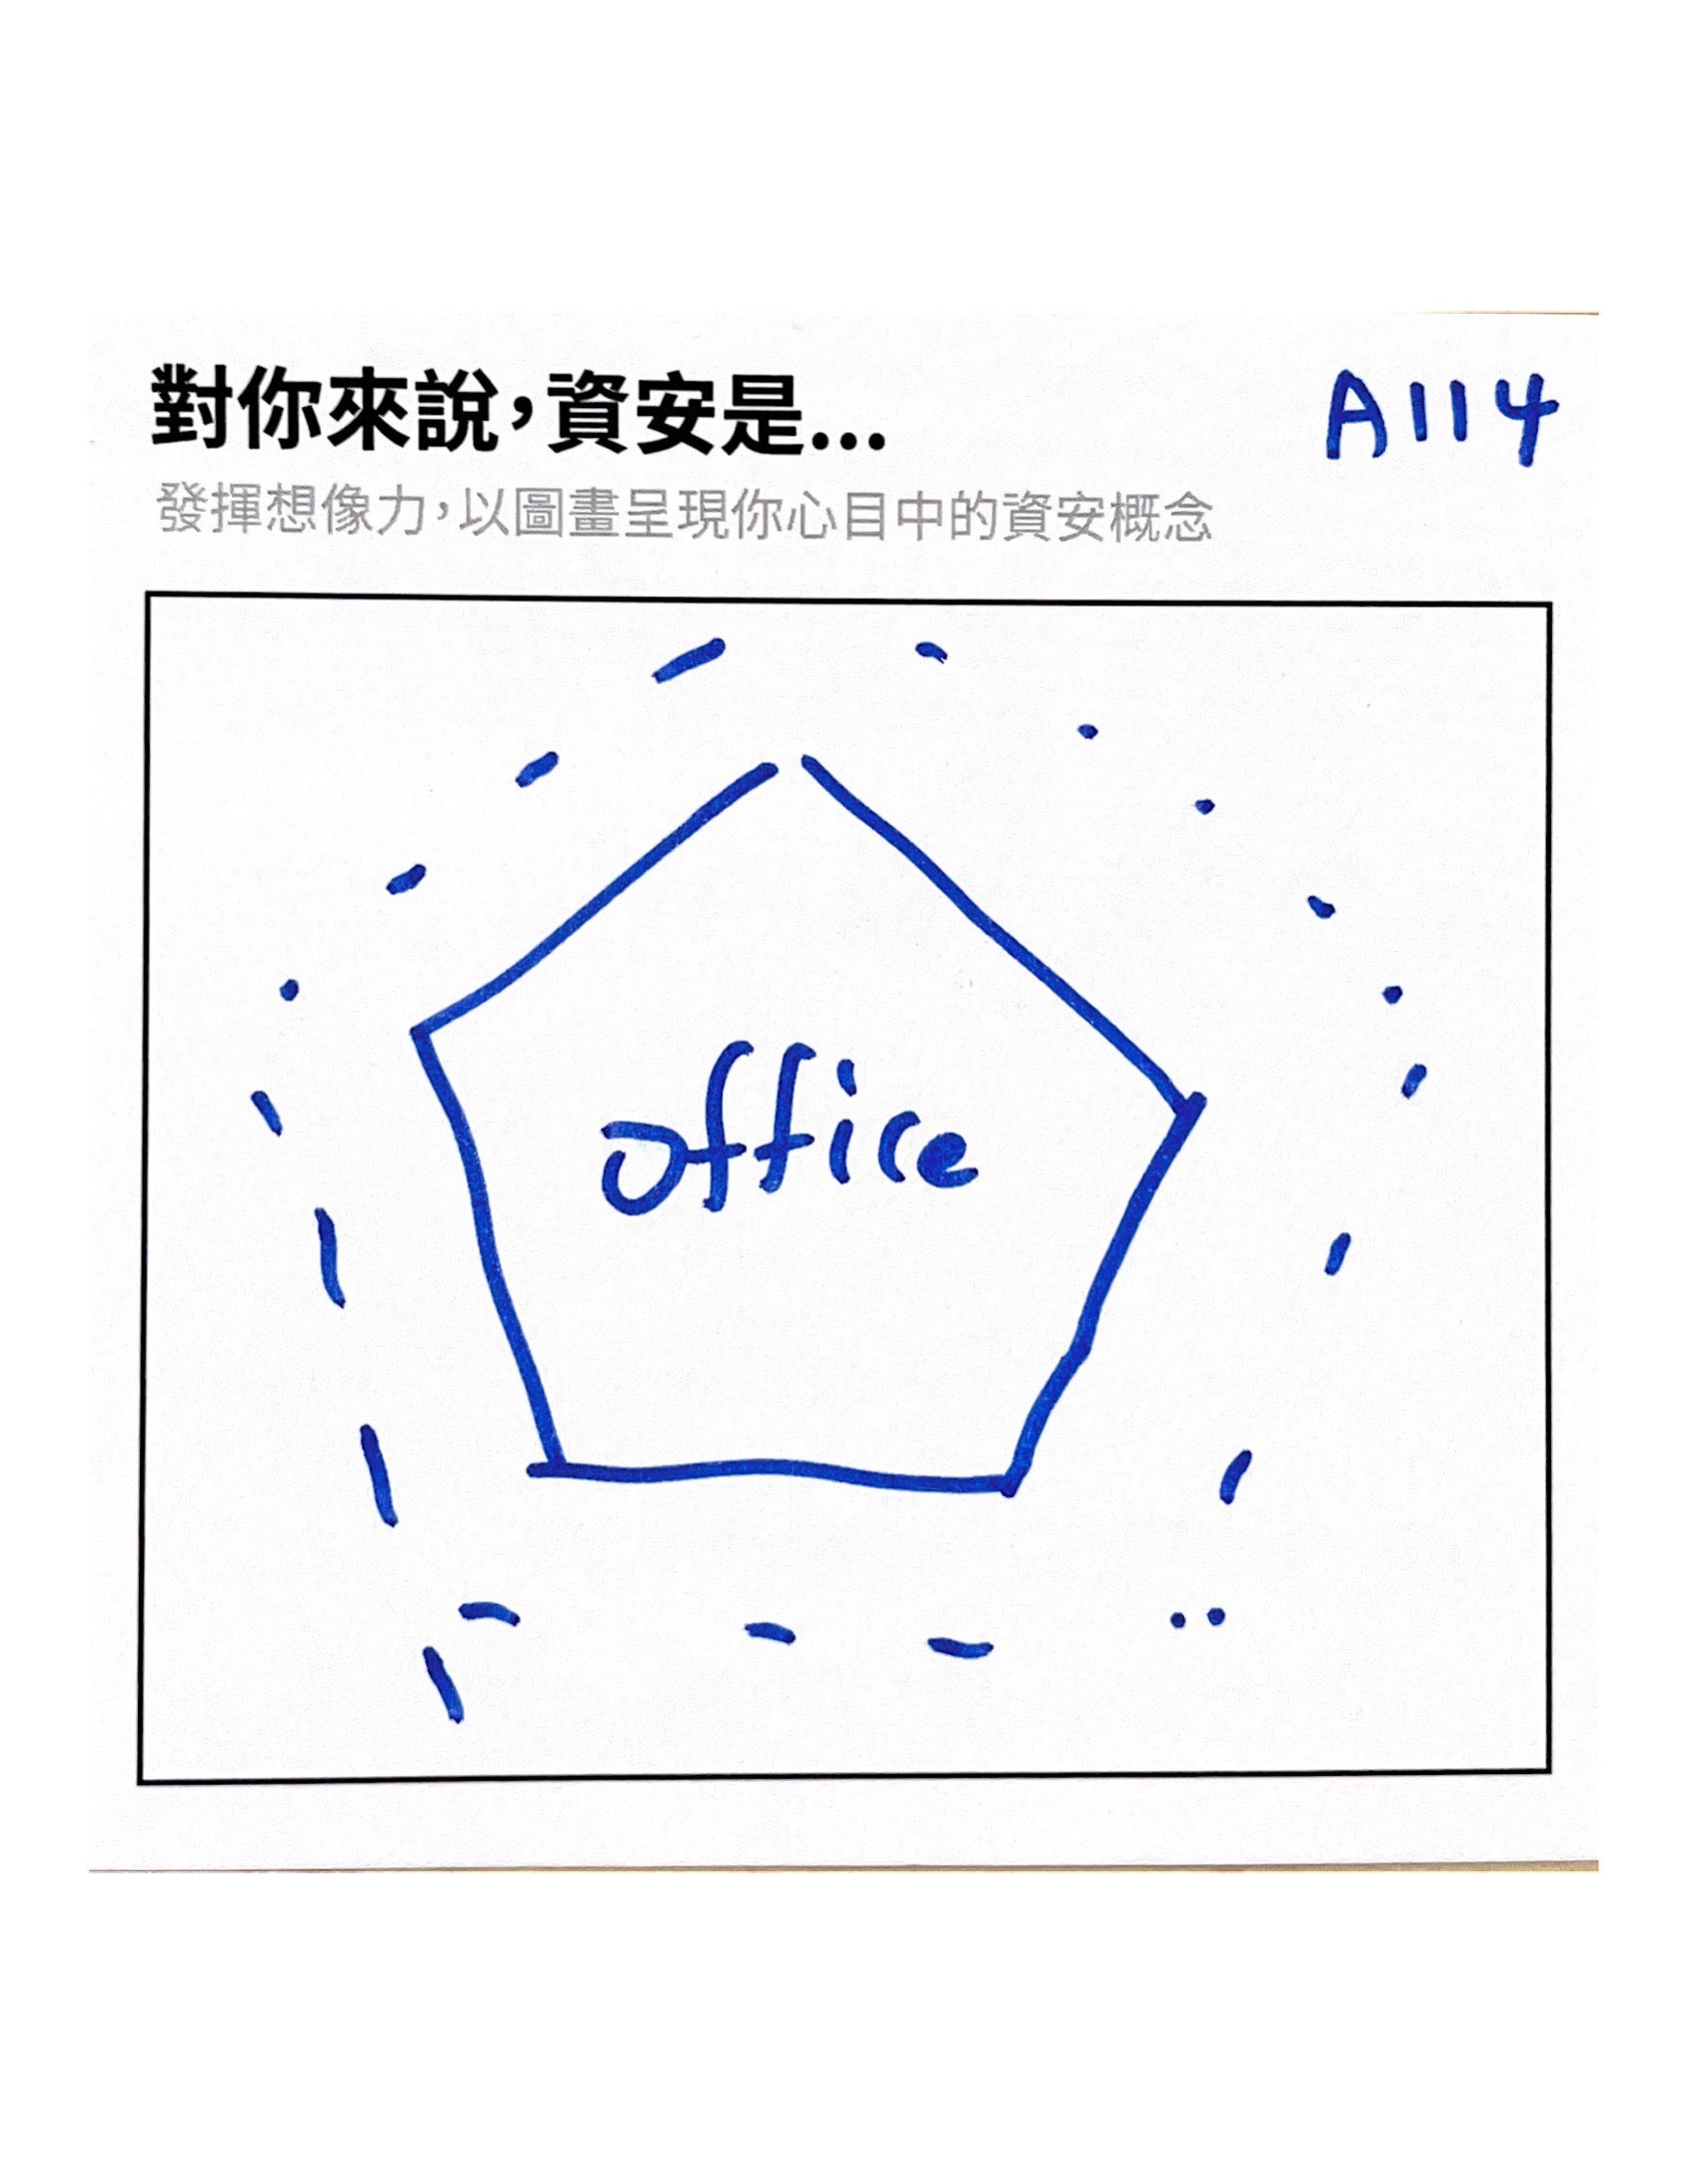 對你來說，資安是...
A114
發揮想像力，以圖畫呈現你心目中的資安概念
office